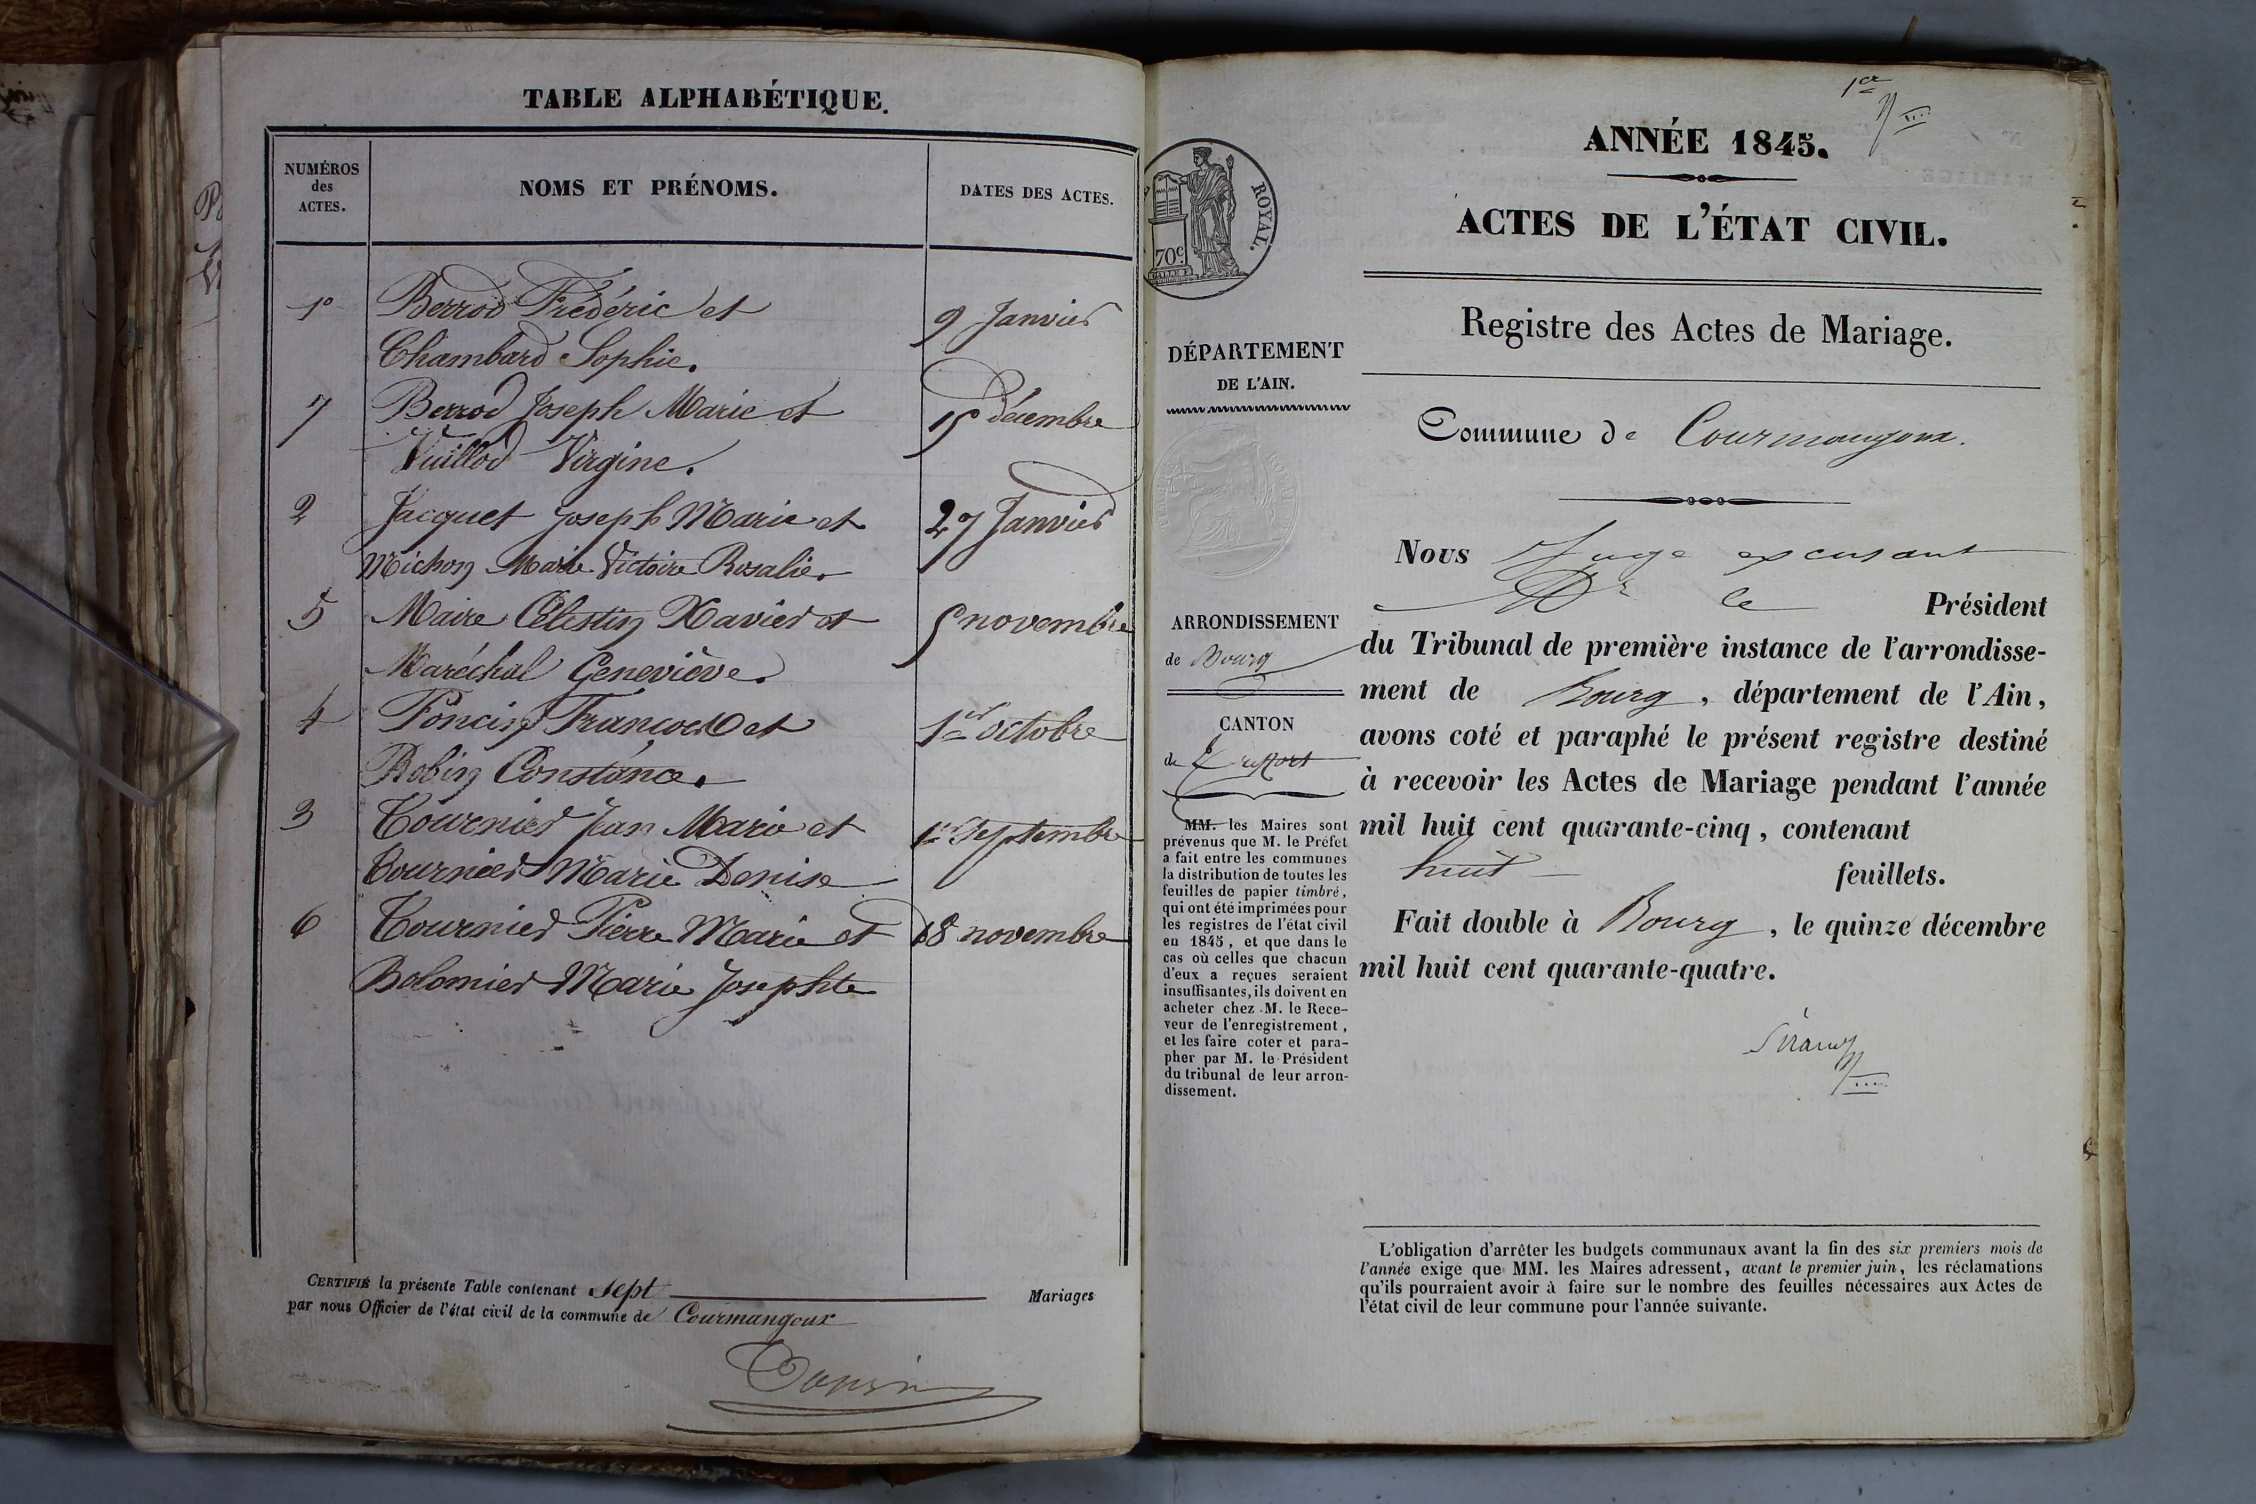 TABLE ALPHABÉTIQUE.
NUMÉROS
des
ACTES.
NOMS ET PRÉNOMS.
DATES DES ACTES.
1° Berrod Frédéric et 9 Janvier
Chambard Sophie.
7 Berrod Joseph Marie et 15 décembre
Vuillod Virgine.
2 Jacquet Joseph Marie et 27 Janvier
Michon Marie Victoire Rosalie.
5 Maire Célestin Xavier et 5 novembre
Maréchal Geneviève.
4 Poncin François et 1er octobre
Robin Constance.
3 Tournier Jean Marie et 1er Septembre
Tournier Marie Denise
6 Tournier Pierre Marie et 18 novembre
Bolomier Marie Josephte
CERTIFIÉ la présente Table contenant sept Mariages
par nous Officier de l'état civil de la commune de Courmangoux
1er
ANNÉE 1845.
ACTES DE L'ÉTAT CIVIL.
Registre des Actes de Mariage.
Commune de Courmangoux.
ROYAL.
70c.
DÉPARTEMENT
DE L'AIN.
ARRONDISSEMENT
de Bourg
CANTON
de Treffort
MM. les Maires sont
prévenus que M. le Préfet
a fait entre les communes
la distribution de toutes les
feuilles de papier timbré,
qui ont été imprimées pour
les registres de l'état civil
en 1845, et que dans le
cas où celles que chacun
d'eux a reçues seraient
insuffisantes, ils doivent en
acheter chez M. le Rece-
veur de l'enregistrement,
et les faire coter et para-
pher par M. le Président
du tribunal de leur arron-
dissement.
Nous Juge excusant
Mr le Président
du Tribunal de première instance de l'arrondisse-
ment de Bourg, département de l'Ain,
avons coté et paraphé le présent registre destiné
à recevoir les Actes de Mariage pendant l'année
mil huit cent quarante-cinq, contenant
huit feuillets.
Fait double à Bourg, le quinze décembre
mil huit cent quarante-quatre.
L'obligation d'arrêter les budgets communaux avant la fin des six premiers mois de
l'année exige que MM. les Maires adressent, avant le premier juin, les réclamations
qu'ils pourraient avoir à faire sur le nombre des feuilles nécessaires aux Actes de
l'état civil de leur commune pour l'année suivante.